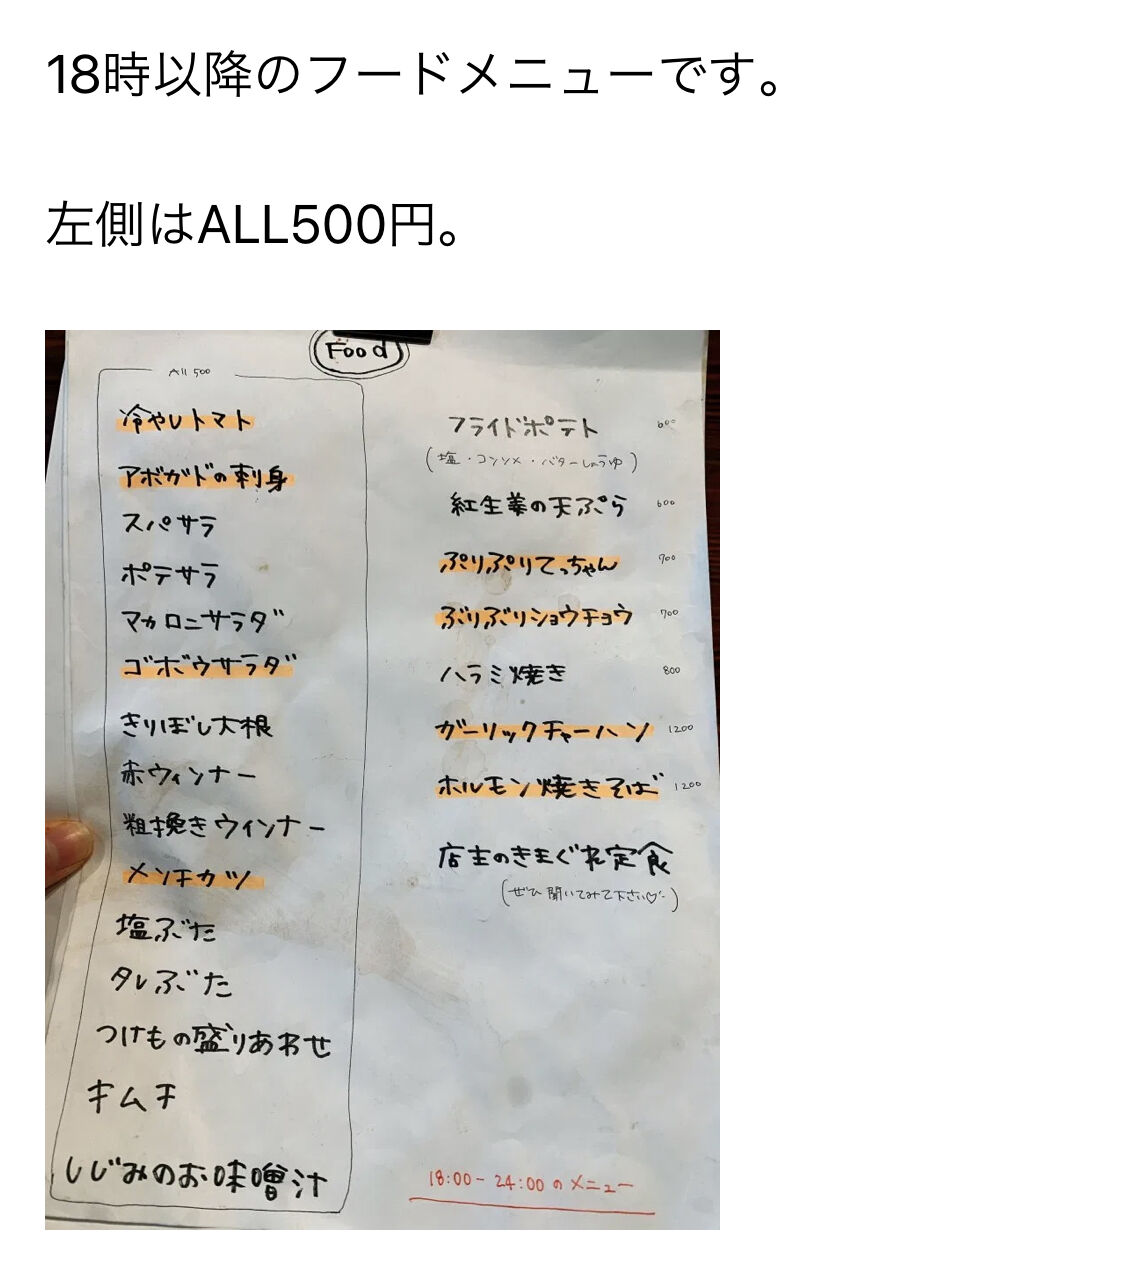 18時以降のフードメニューです。
左側はALL500円。
Food
All 500
冷やしトマト
アボガドの刺身
スパサラ
ポテサラ
マカロニサラダ
ゴボウサラダ
きりぼし大根
赤ウィンナー
粗挽きウィンナー
メンチカツ
塩ぶた
タレぶた
つけもの盛りあわせ
キムチ
しじみのお味噌汁
フライドポテト 600
(塩・コンソメ・バターしょうゆ)
紅生姜の天ぷら 600
ぷりぷりてっちゃん 700
ぶりぶりショウチョウ 700
ハラミ焼き 800
ガーリックチャーハン 1200
ホルモン焼きそば 1200
店主のきまぐれ定食
(ぜひ聞いてみて下さい♡)
18:00-24:00のメニュー